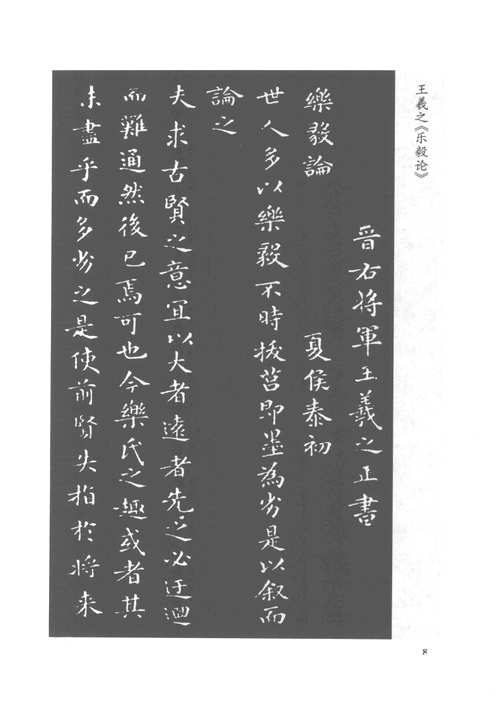 王羲之《乐毅论》
晉右將軍王羲之正書
樂毅論 夏侯泰初
世人多以樂毅不時拔莒即墨為劣是以叙而
論之
夫求古賢之意宜以大者遠者先之必迂迴
而難通然後已焉可也今樂氏之趣或者其
未盡乎而多劣之是使前賢失指於將来
8